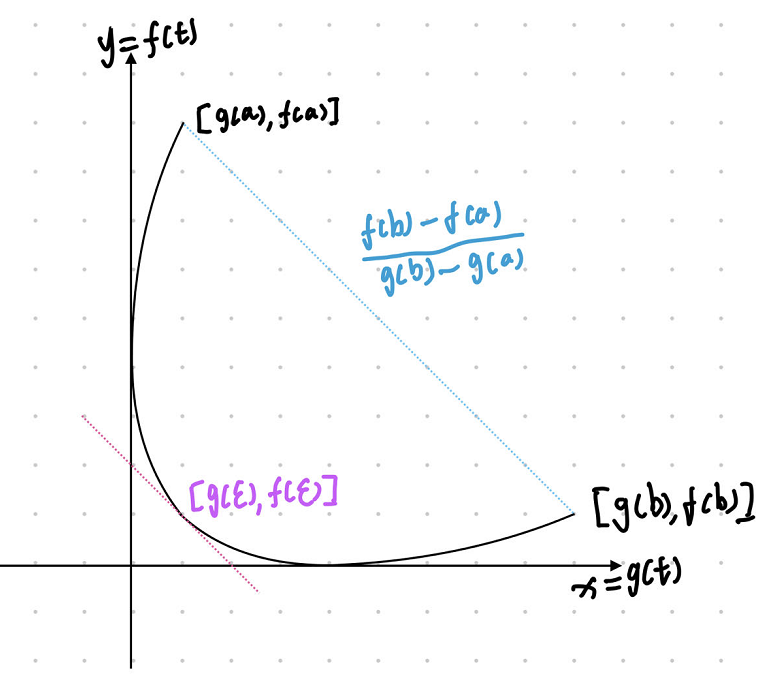 y=f(t)
[g(a),f(a)]
f(b)-f(a)
g(b)-g(a)
[g(ξ),f(ξ)]
[g(b),f(b)]
x=g(t)